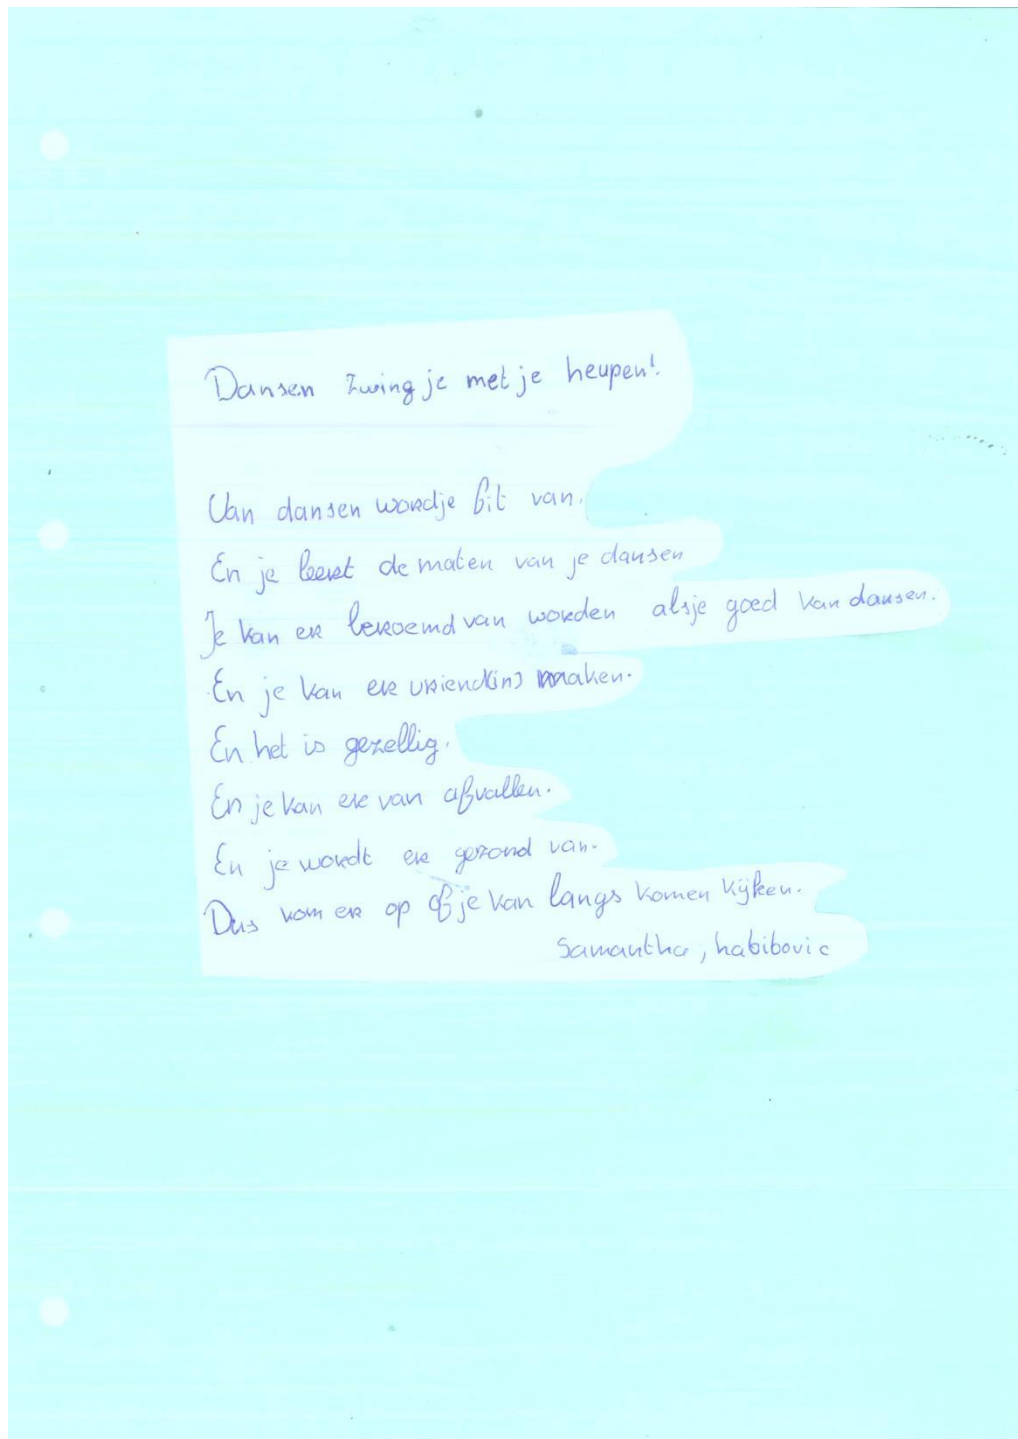 Dansen zwing je met je heupen!
Van dansen wordje fit van.
En je leert de maten van je dansen
Je kan er beroemd van worden alsje goed kan dansen.
En je kan er vriendins maken.
En het is gezellig.
En je kan er van afvallen.
En je wordt er gezond van.
Dus kom er op of je kan langs komen kijken.
Samantha, habibovic